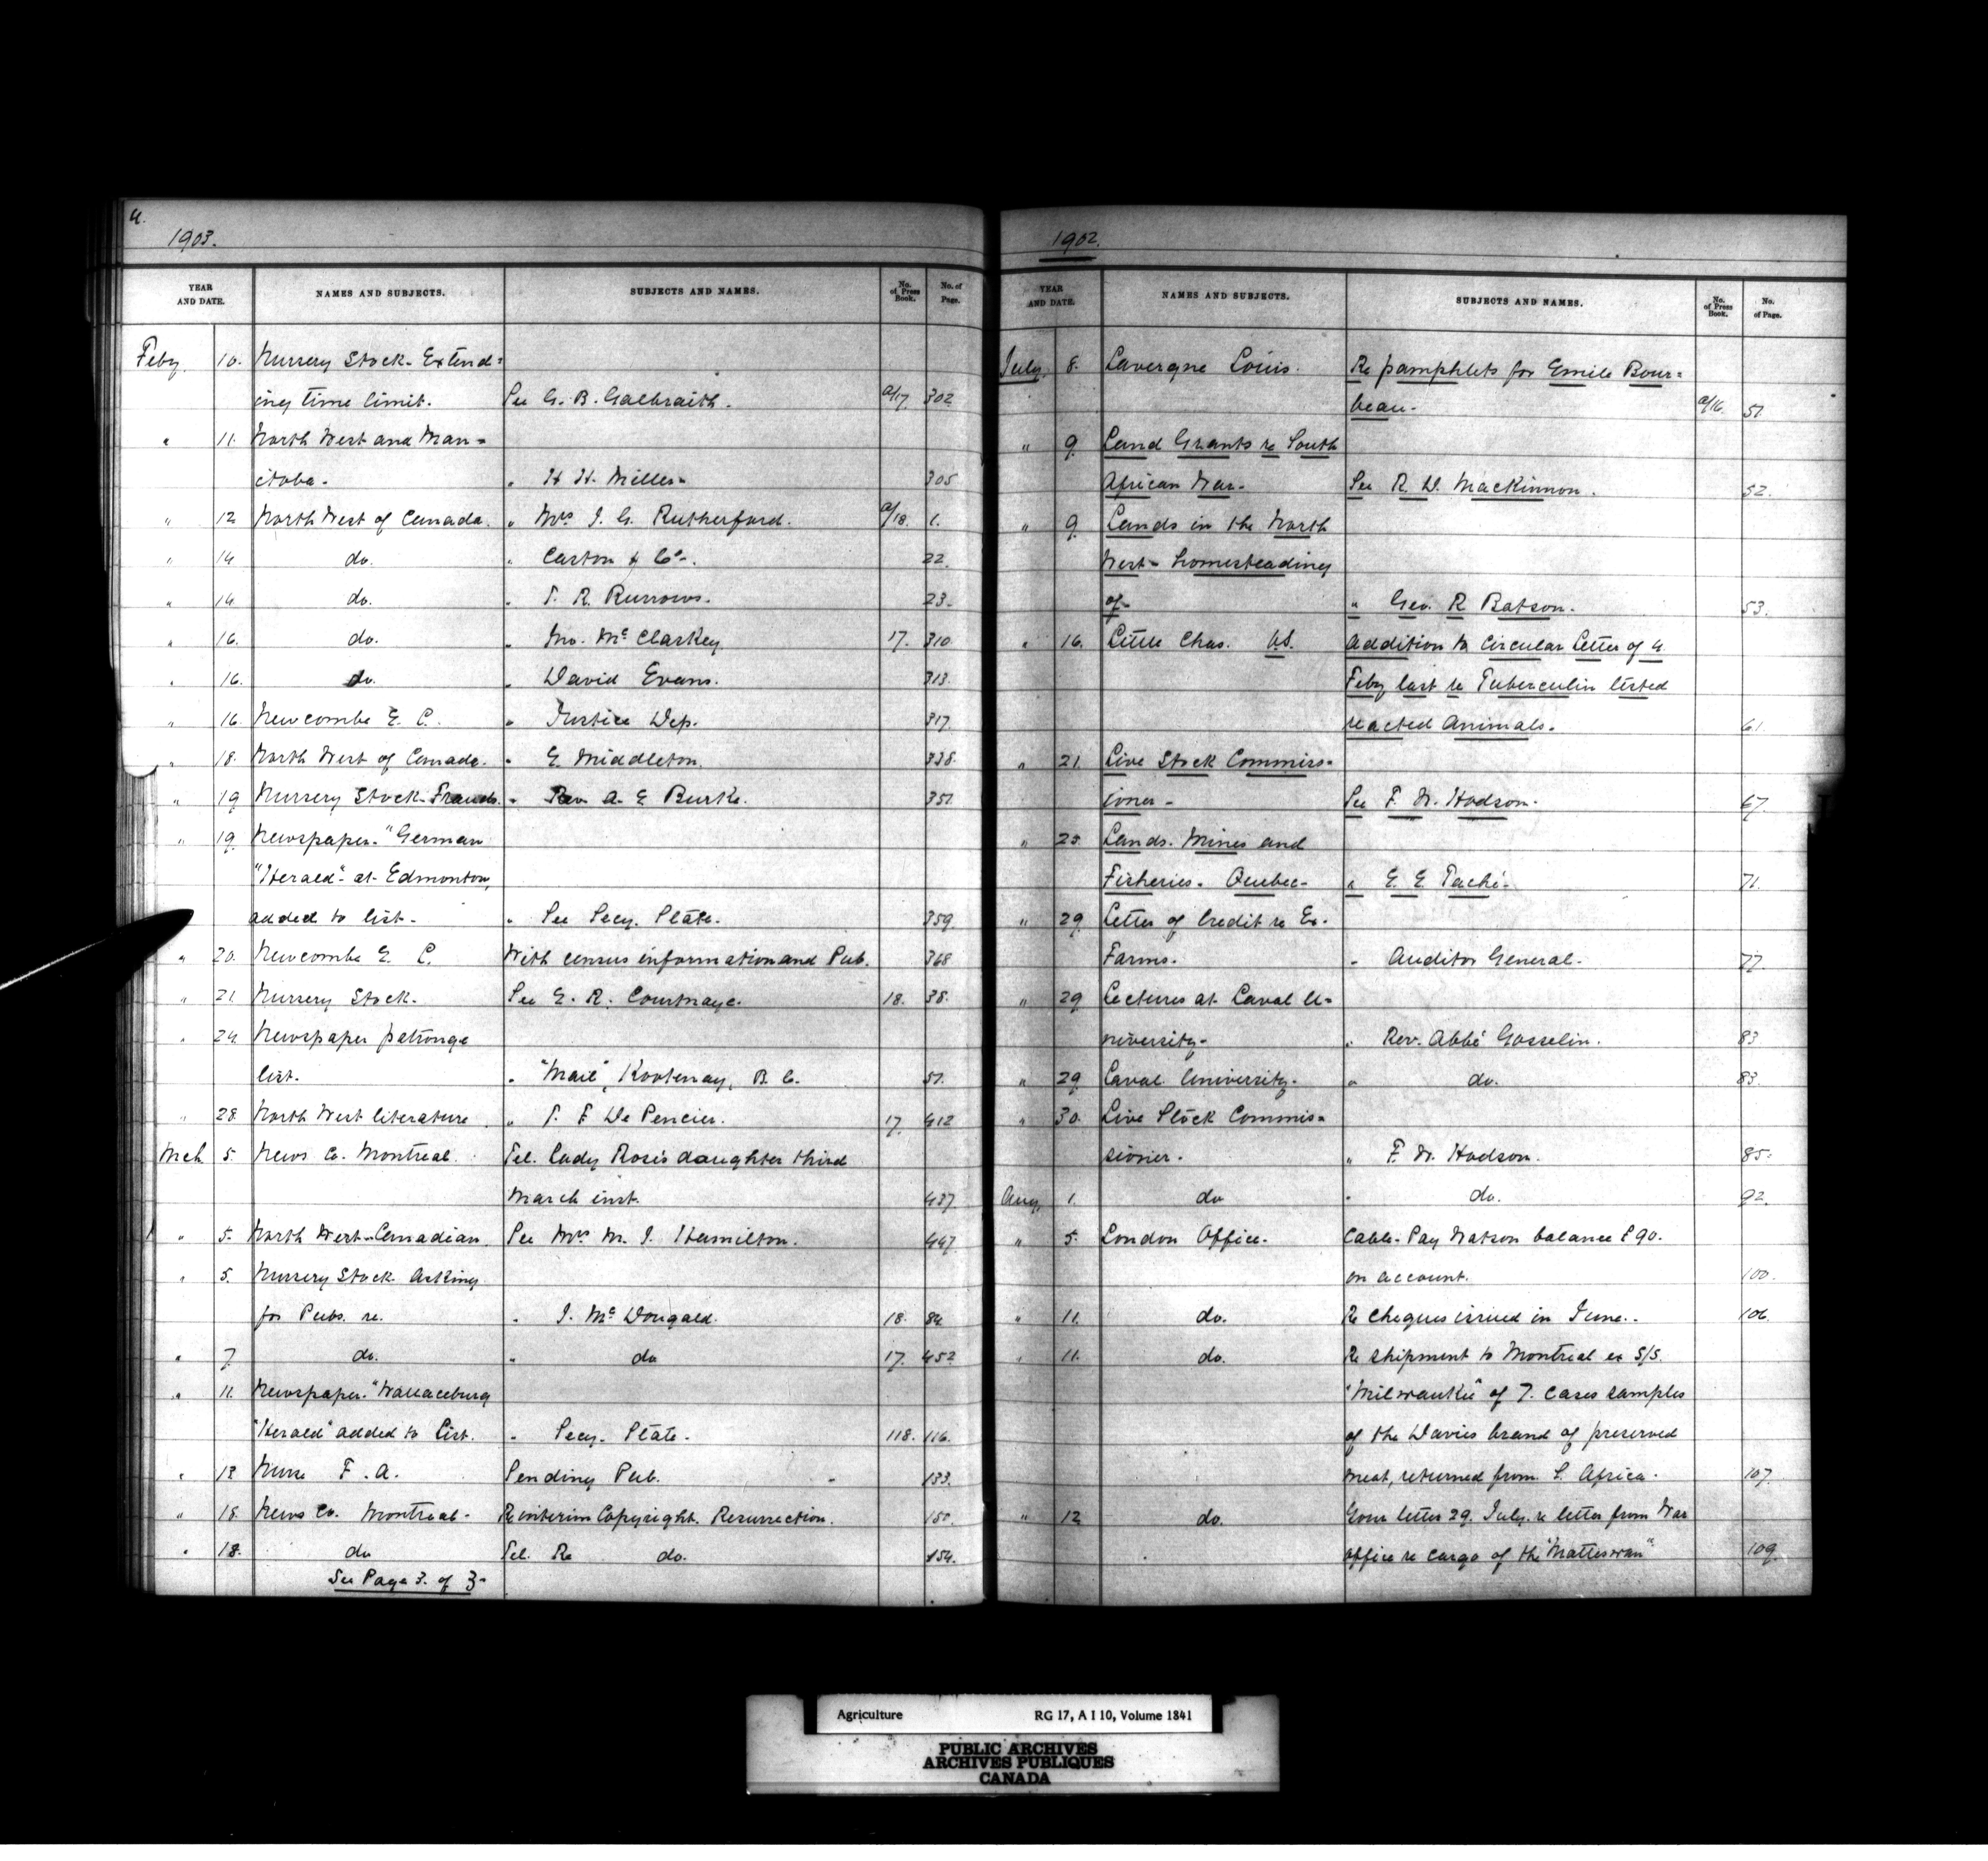 4.
1903.
YEAR AND DATE. NAMES AND SUBJECTS. SUBJECTS AND NAMES. No. of Press Book. No. of Page.
Feby. 10. Nursery Stock - Extend=
ing time limit. See G. B. Galbraith. a/17. 302
" 11. North West and Man=
itoba. " H. H. Miller. 305
" 12 North West of Canada. " Mrs J. G. Rutherford. a/18. 1.
" 14 do. " Carton & Co. 22.
" 14 do. " T. R. Burrows. 23.
" 16. do. " Jno. McClarkey 17. 310
" 16. do. " David Evans. 313.
" 16. Newcombe E. C. " Justice Dep. 317.
" 18. North West of Canada. " E. Middleton. 338.
" 19 Nursery Stock-Frauds. " Rev. A. E. Burke. 351.
" 19. Newspaper - "German
"Herald" at Edmonton,
added to list. " See Secy. State. 359.
" 20. Newcombe E. C. With census information and Pub. 368
" 21. Nursery Stock. See E. R. Courtnaye. 18. 38.
" 24. Newspaper patronge
list. " "Mail", Kootenay, B. C. 51.
" 28. North West literature " T. F. De Pencier. 17. 412
Mch. 5. News Co. Montreal. Tel. Lady Rose's daughter third
March inst. 437.
" 5. North West-Canadian. See Mrs M. J. Hamilton. 447.
" 5. Nursery Stock Asking
for Pubs. re. " J. McDougald. 18. 84.
" 7. do. " do 17. 452
" 11. Newspaper - "Wallaceburg
"Herald" added to List. " Secy. State. 118. 116.
" 13 Nurse F. A. Sending Pub. 133.
" 18. News Co. Montreal. Re interim Copyright. Resurrection. 150.
" 18. do Tel. Re do. 154.
See Page 3. of 3.
1902.
YEAR AND DATE. NAMES AND SUBJECTS. SUBJECTS AND NAMES. No. of Press Book. No. of Page.
July. 8. Lavergne Louis. Re pamphlets for Emile Bour=
beau. a/16. 51.
" 9. Land Grants re South
African War. See R. D. MacKinnon. 52.
" 9. Lands in the North
West - homesteading
of. " Geo. R. Batson. 53.
" 16. Little Chas. V.S. Addition to Circular Letter of 4.
Feby last re Tuberculin tested
reacted Animals. 61.
" 21. Live Stock Commiss=
ioner - See F. W. Hodson. 67.
" 25. Lands. Mines and
Fisheries. Quebec. " E. E. Taché. 71.
" 29. Letter of Credit re Ex.
Farms. " Auditor General. 77.
" 29 Lectures at Laval U=
niversity. " Rev. Abbé Gosselin. 83
" 29 Laval University. " do. 83.
" 30. Live Stock Commis=
sioner. " F. W. Hodson. 85.
Aug. 1. do " do. 92.
" 5. London Office. Cable - Pay Watson balance £90.
on account. 100.
" 11. do. Re cheques issued in June. 106.
" 11. do. Re shipment to Montreal ex S/S.
"Milwaukee" of 7. cases samples
of the Davies brand of preserved
meat, returned from S. Africa. 107.
" 12 do. Your letter 29. July. re letter from War
office re cargo of the "Matteswan" 109.
Agriculture RG 17, A I 10, Volume 1841
PUBLIC ARCHIVES
ARCHIVES PUBLIQUES
CANADA